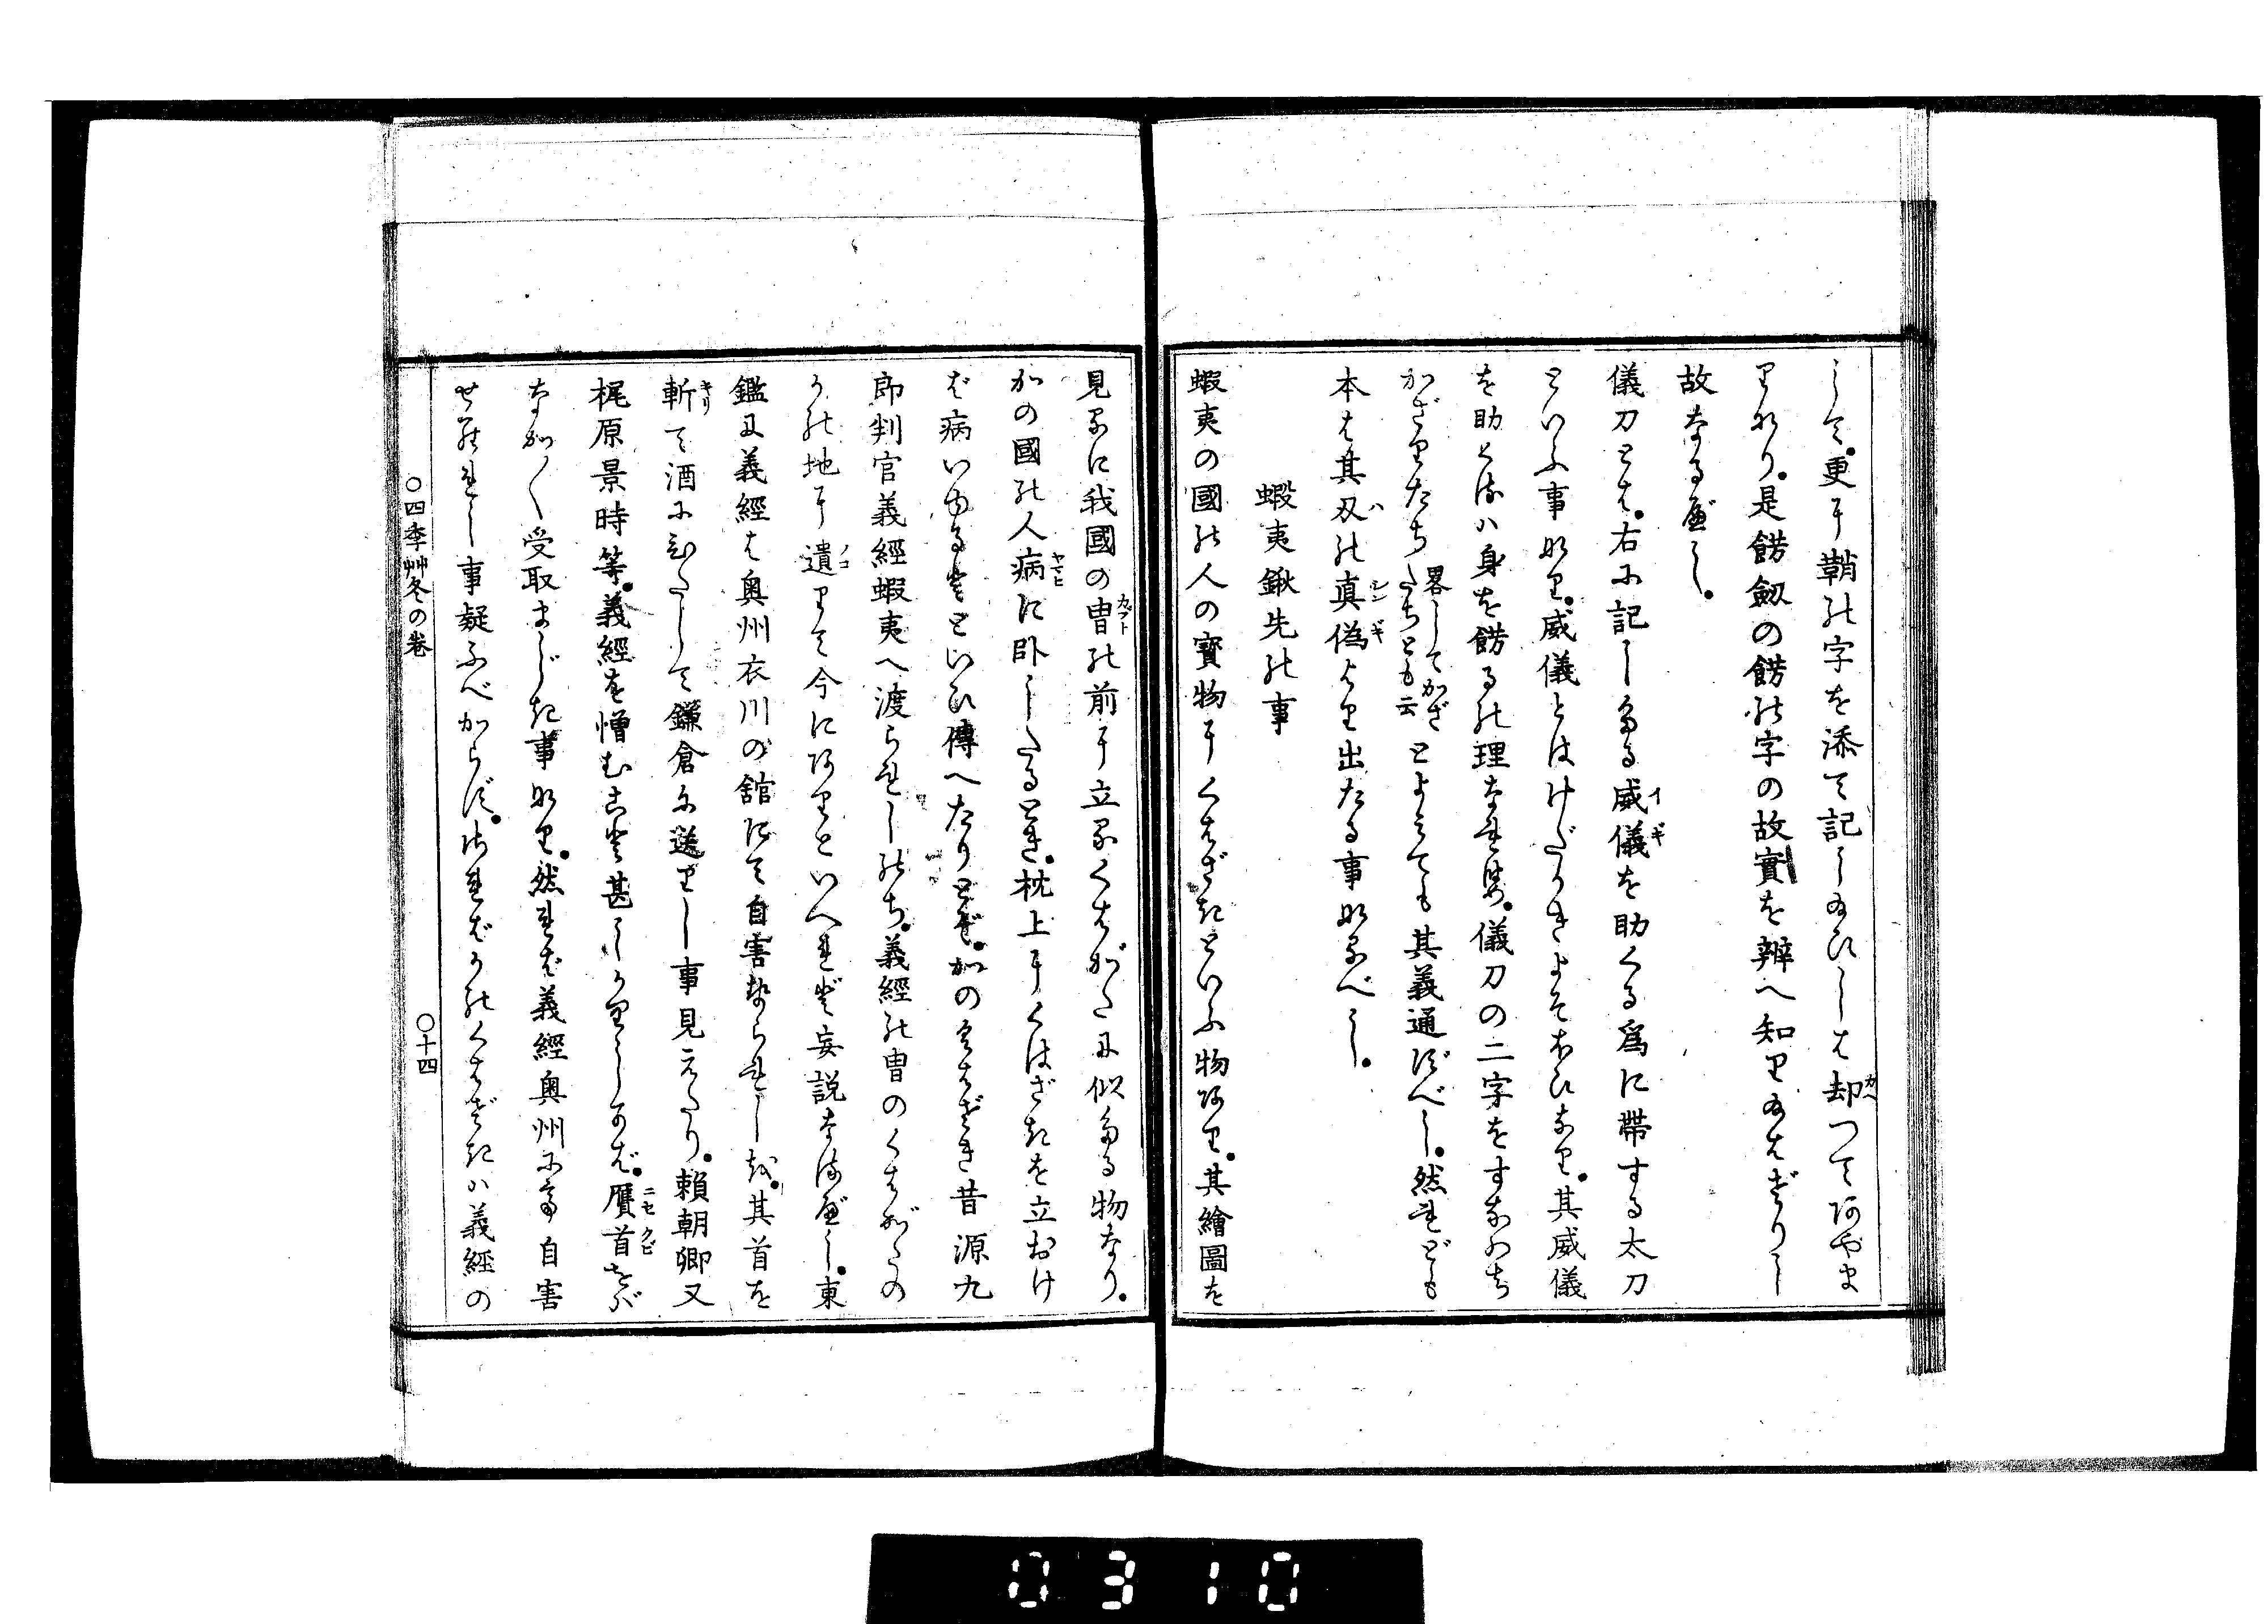 して。更に鞘の字を添て記し給ひしは却つてあやま
りなり。是餝劔の餝の字の故實を辨へ知り給はざりし
故なるべし。
儀刀とは。右に記したる威儀を助くる爲に帶する太刀
といふ事なり。威儀とはけだかきよそほひなり。其威儀
を助とは身を餝るの理なれば。儀刀の二字をすなわち
かざりたち畧してかざたちとも云とよみても其義通ずべし。然れども
本は其刄の真偽より出たる事なるべし。
蝦夷鍬先の事
蝦夷の國の人の寳物にくはざきといふ物あり。其繪圖を
見るに我國の冑の前に立るくはがたに似たる物なり。
かの國の人病に卧したるとき。枕上にくはざきを立おけ
ば病いゆるなどといひ傳へたりとぞ。かのくはざき昔源九
郎判官義經蝦夷へ渡られしのち。義經の冑のくはがたの
かの地に遺りて今にありといへれど妄説なるべし。東
鑑に義經は奥州衣川の舘にて自害せられしを。其首を
斬て酒にひたして鎌倉に送りし事見えたり。頼朝卿又
梶原景時等。義經を憎むこと甚しかりしかば。贋首をば
なか〳〵受取まじき事なり。然れば義經奥州にて自害
せられし事疑ふべからず。さればかのくはざきハ義經の
○四季艸冬の巻
○十四
0310